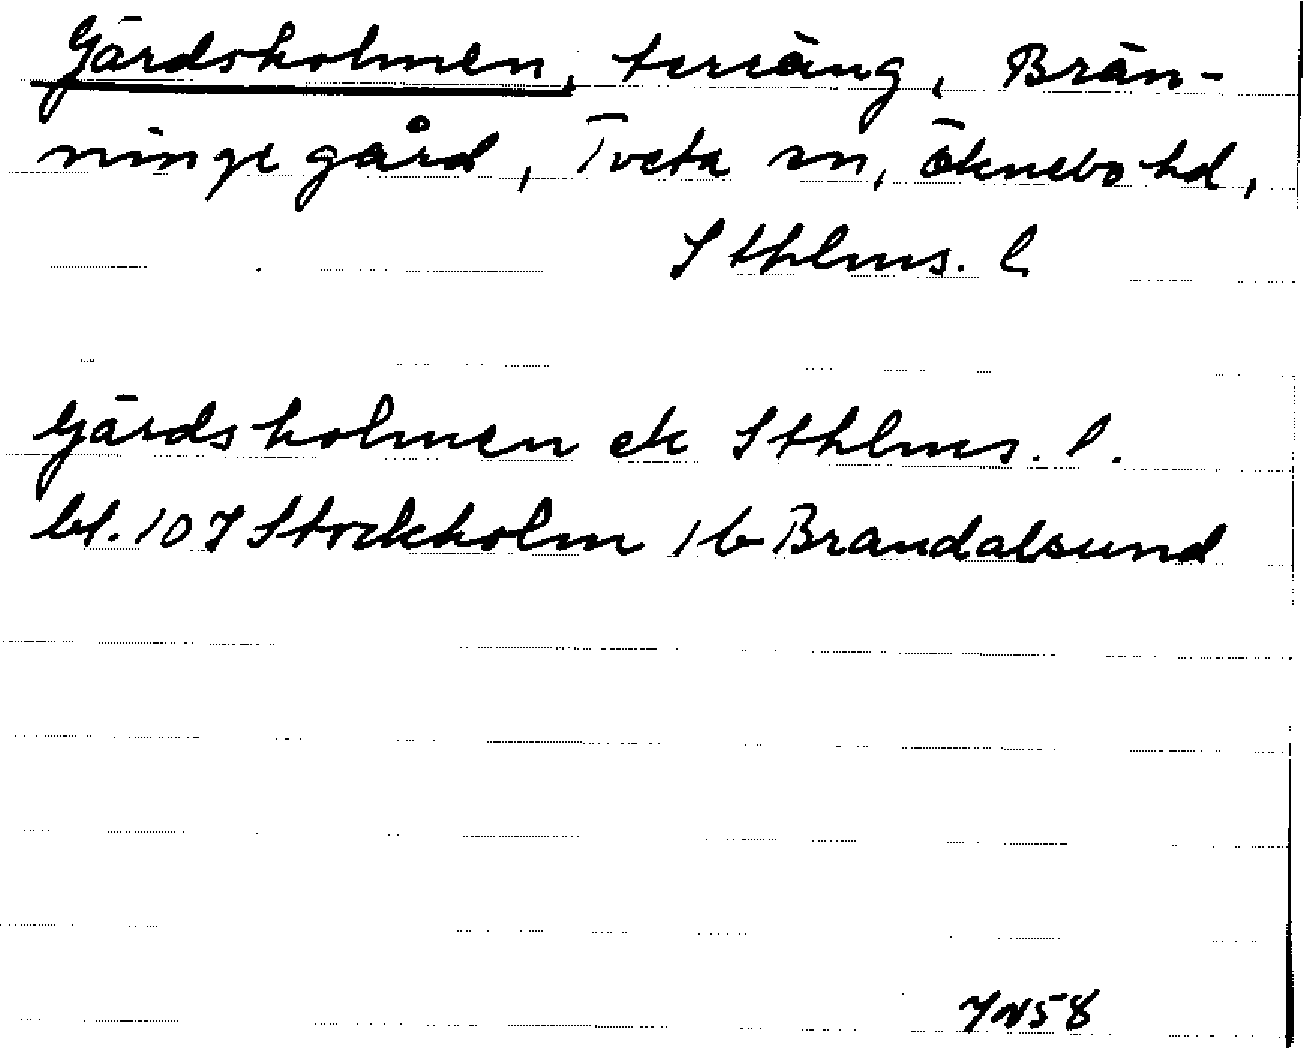 Gärdsholmen, terräng, Brän-
ninge gård, Tveta sn, Öknebo hd,
Sthlms. l
Gärdsholmen ek Sthlms. l.
bl. 107 Stockholm 1b Brandalsund
7N58